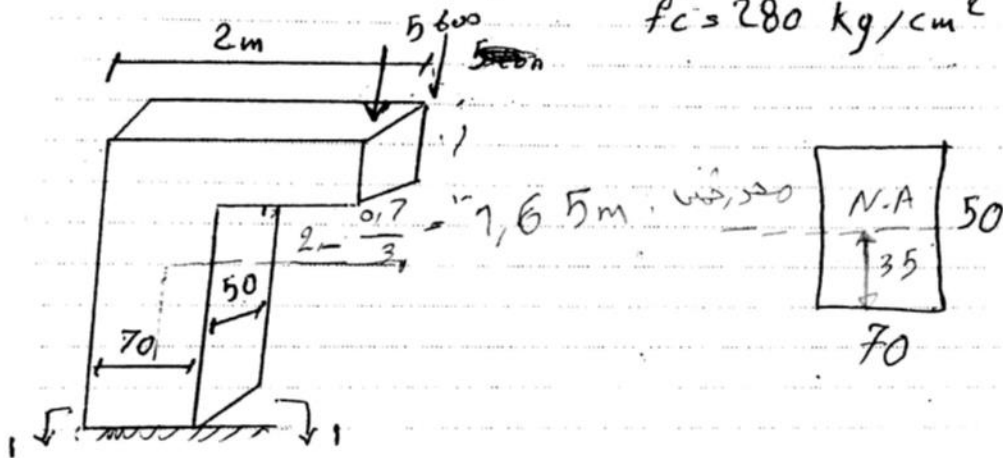 fc = 280 kg/cm²
2m
5 600
2 - 0,7/3 = 1,65m
محور خنثی
N.A
50
35
70
50
70
1 1